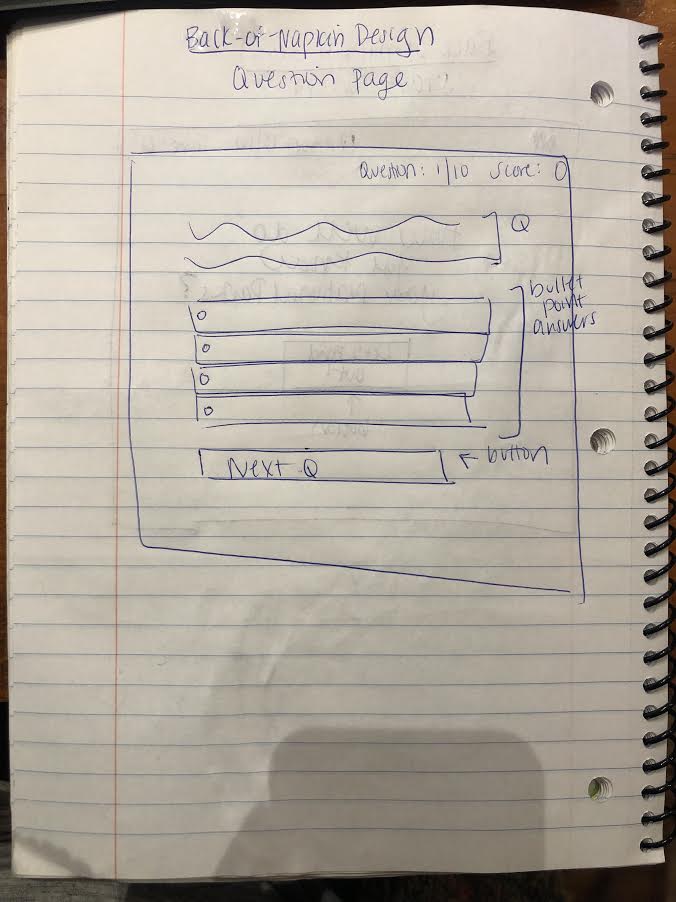 Back-of-Napkin Design
Question Page
Question: 1/10 Score: 0
Q
bullet
point
answers
Next Q
button